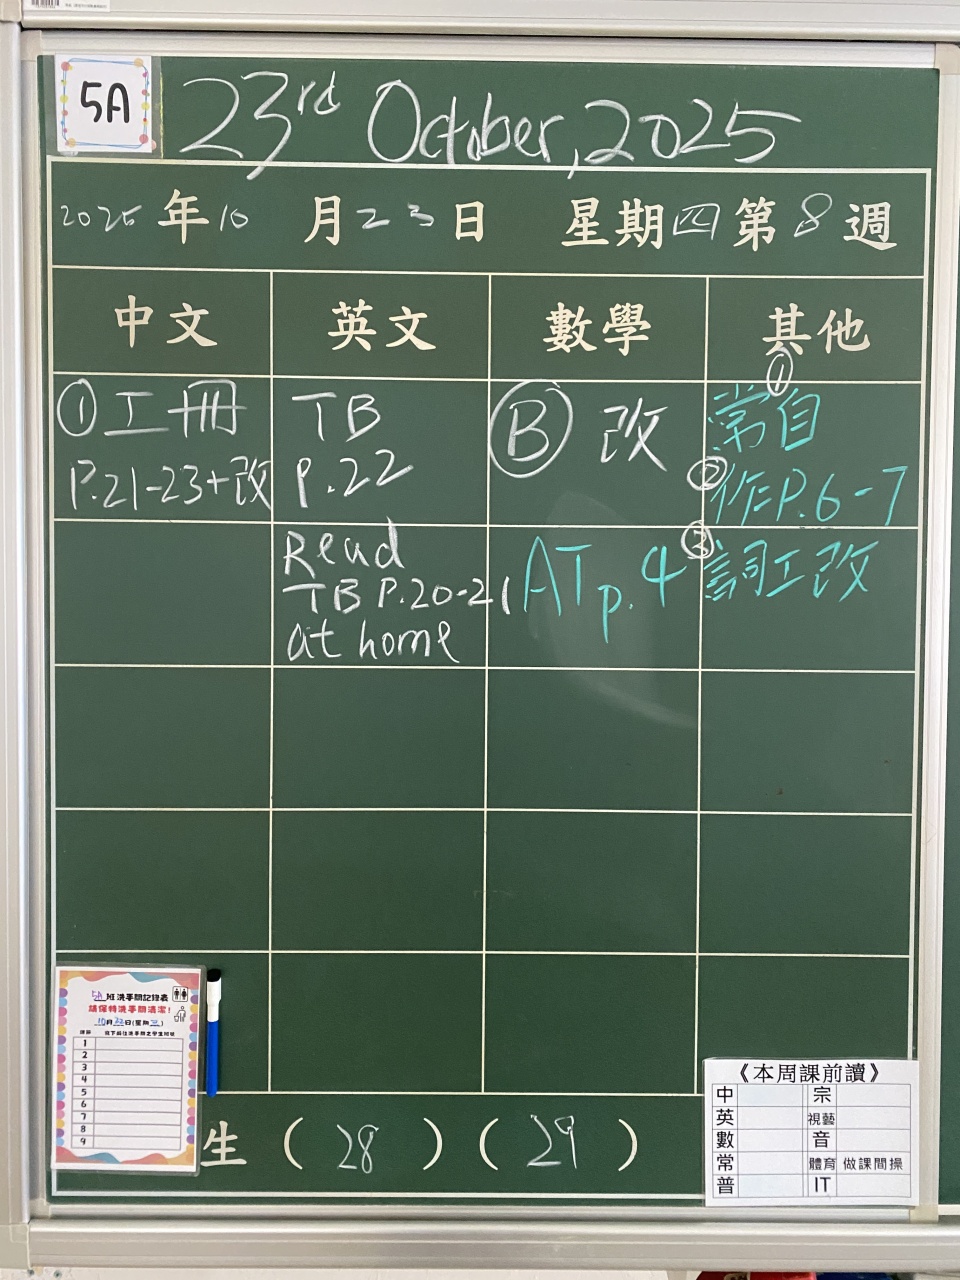 5A
23rd October, 2025
2025年10月23日 星期四第8週
中文 英文 數學 其他
①工冊
P.21-23+改
TB
P.22
Read
TB P.20-21
at home
Ⓑ 改
AT p.4
①常自
②作P.6-7
③詞工改
5A班洗手間記錄表
請保持洗手間清潔!
10月22日(星期三)
1
2
3
4
5
6
7
8
9
生 (28) (29)
《本周課前讀》
中 宗
英 視藝
數 音
常 體育 做課間操
普 IT